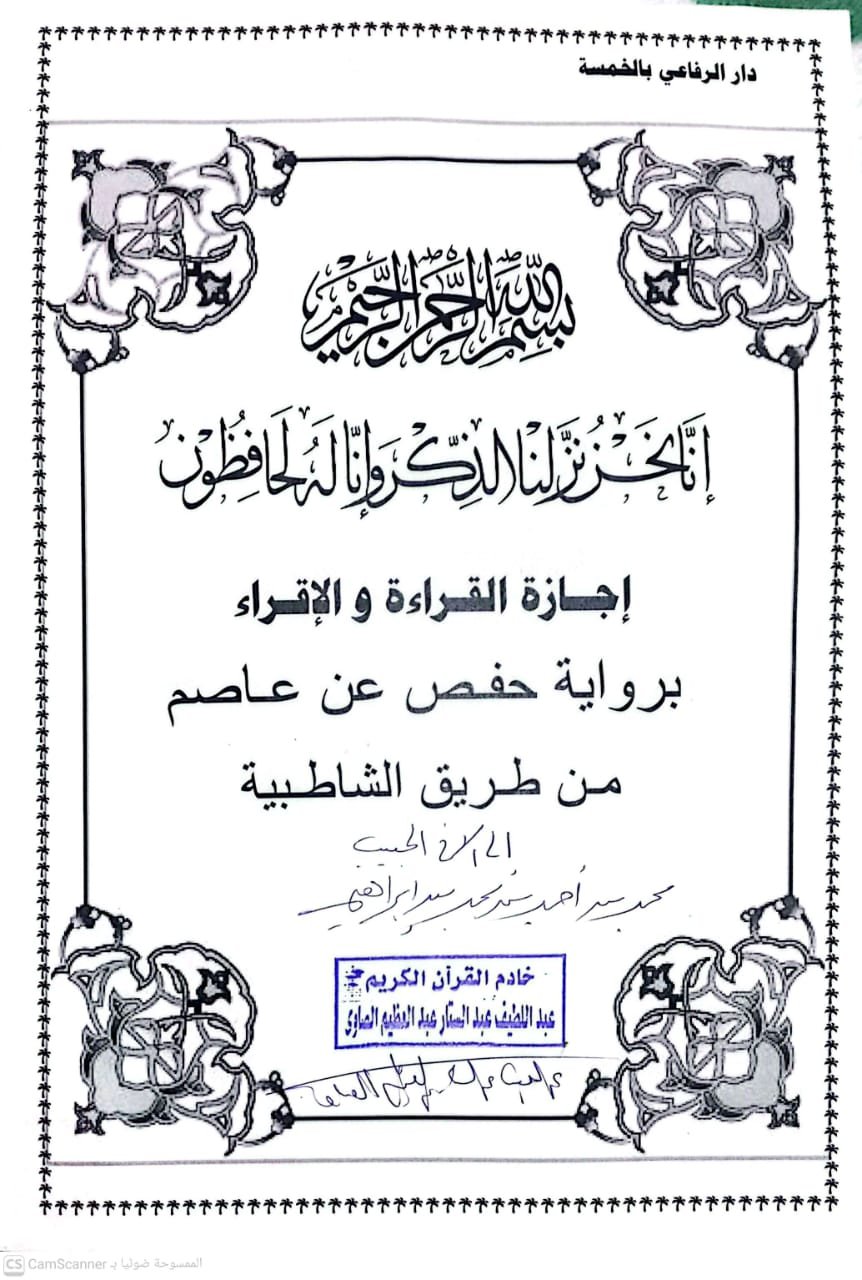 دار الرفاعي بالخمسة
بسم الله الرحمن الرحيم
إنا نحن نزلنا الذكر وإنا له لحافظون
إجازة القراءة و الإقراء
برواية حفص عن عاصم
من طريق الشاطبية
إلى الأخ الحبيب
محمد سيد أحمد سيد محمد سيد إبراهيم
خادم القرآن الكريم
عبد اللطيف عبد الستار عبد العظيم الصاوى
CS CamScanner الممسوحة ضوئيا بـ